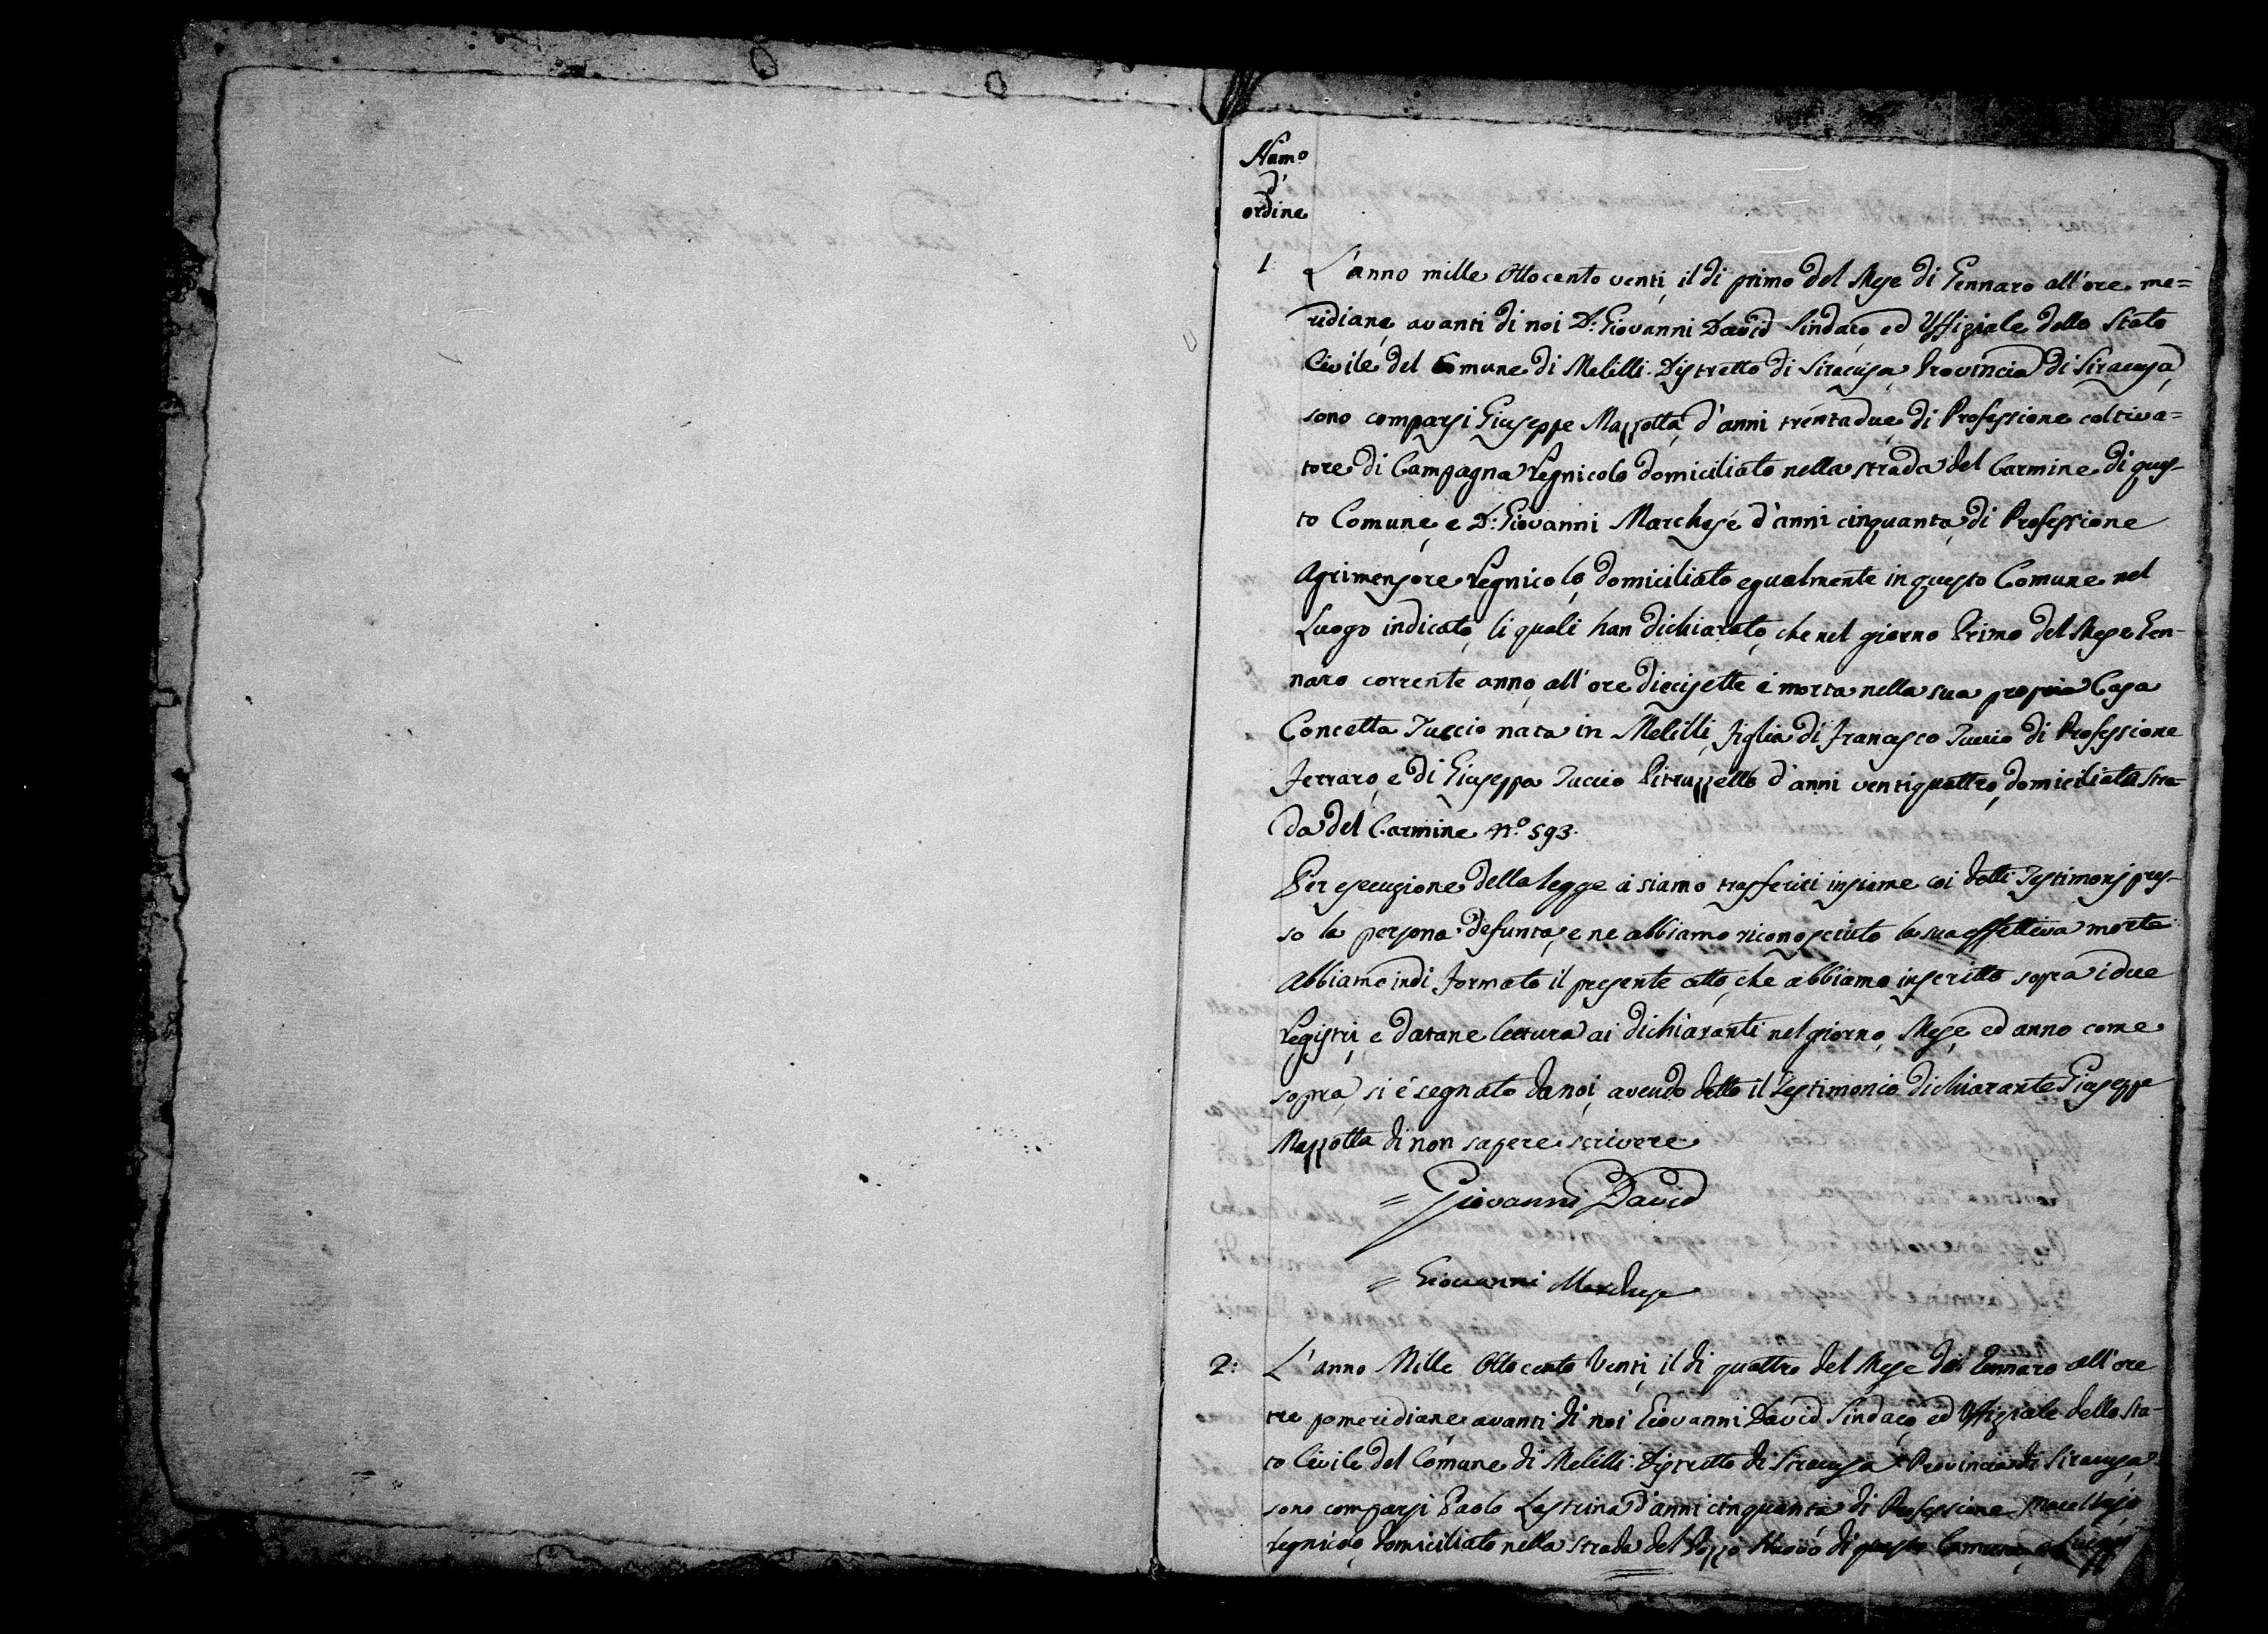 Num.o
d'
ordine
1 L'anno mille Ottocento venti, il di primo del Mese di Gennaro all'ore me=
ridiane, avanti di noi D: Giovanni David Sindaco, ed Uffiziale dello Stato
Civile del Comune di Melilli Distretto di Siracusa, Provincia di Siracusa,
sono comparsi Giuseppe Mazzotta, d'anni trentadue, di Professione coltiva=
tore di Campagna Regnicolo domiciliato nella strada del Carmine di ques-
to Comune, e D: Giovanni Marchese d'anni cinquanta, di Professione
Agrimensore Regnicolo, domiciliato egualmente in questo Comune nel
Luogo indicato, li quali han dichiarato, che nel giorno Primo del Mese Gen-
naro corrente anno, all'ore diecisette è morta nella sua propria Casa
Concetta Tuccio nata in Melilli, figlia di Francesco Tuccio di Professione
Ferraro, e di Giuseppa Tuccio Pitruzzello d'anni ventiquattro, domiciliata stra-
da del Carmine n.o 593.
Per esecuzione della legge ci siamo trasferiti insieme coi detti Testimonj pres-
so la persona defunta, e ne abbiamo riconosciuto la sua effettiva morte
Abbiamo indi formato il presente atto, che abbiamo inscritto sopra i due
Registri, e datane lettura ai dichiaranti nel giorno, Mese, ed anno come
sopra, si è segnato da noi, avendo detto il Testimonio dichiarante Giuseppe
Mazzotta di non sapere scrivere
= Giovanni David
= Giovanni Marchese
2: L'anno Mille Ottocento Venti, il di quattro del Mese di Gennaro all'ore
tre pomeridiane, avanti di noi Giovanni David Sindaco, ed Uffiziale dello Sta-
to Civile del Comune di Melilli Distretto di Siracusa Provincia di Siracusa,
sono comparsi Paolo Lastrina d'anni cinquanta di Professione macellajo
regnicolo, domiciliato nella strada del Pozzo Nuovo di questo Comune, e